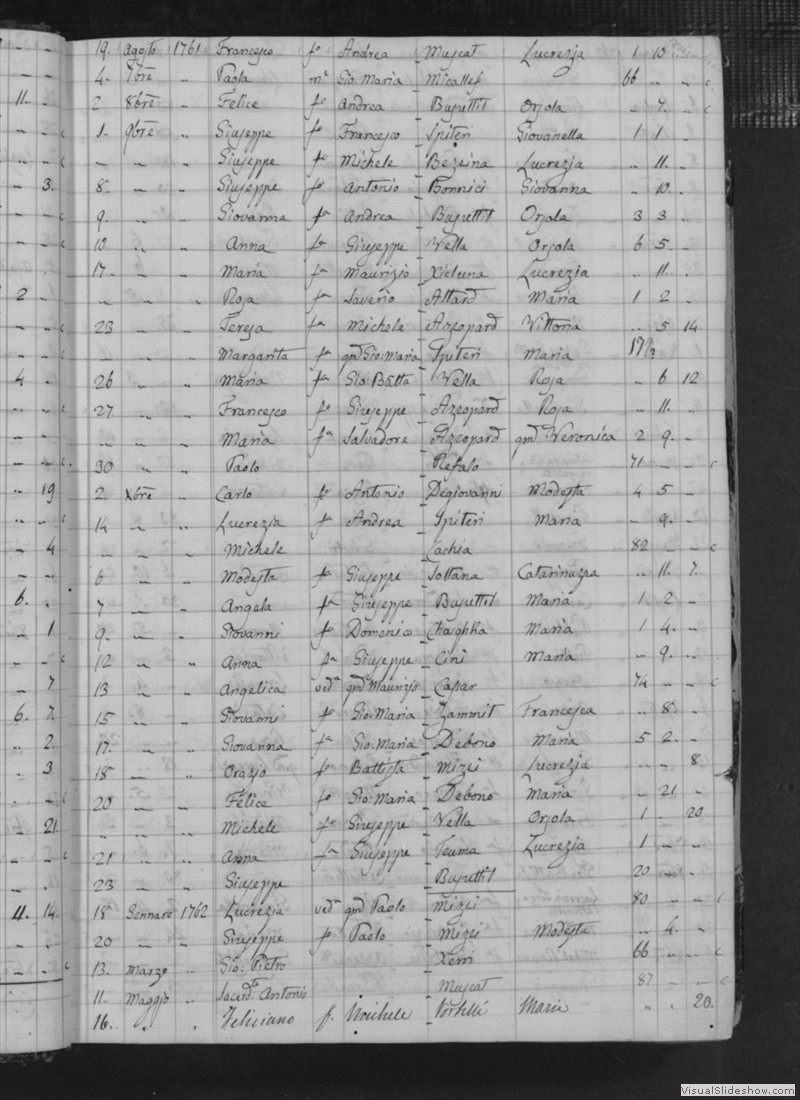 19. Agosto 1761 Francesco fo Andrea Muscat Lucrezia 1 10
4. 7bre " Paola me Gio: Maria Micallef 66 " " c
11. " 2 8bre " Felice fo Andrea Busuttil Orsola " 7. " c
1. 9bre " Giuseppe fo Francesco Spiteri Giovanella 1 1 "
" " " Giuseppe fo Michele Bezzina Lucrezia " 11. "
" 3. 8 " " Giuseppe fo Antonio Bonnici Giovanna " 10. "
9 " " Giovanna fa Andrea Busuttil Orsola 3 3 "
10 " " Anna fa Giuseppe Vella Orsola 6 5 "
17 " " Maria fa Maurizio Xicluna Lucrezia " 11. "
2 " " " " Rosa fa Saverio Attard Maria 1 2 "
23 " " Teresa fa Michele Azzopard Vittoria " 5 14
" " " Margarita fa qm Gio: Maria Spiteri Maria
4. " 26 " " Maria fa Gio Batta Vella Rosa " 6 12
27 " " Francesco fo Giuseppe Azzopard Rosa " 11. "
" " " Maria fa Salvadore Azzopard qm Veronica 2 9. "
30 " " Paolo Refalo 71 " " c
" 19 2 Xbre " Carlo fo Antonio Degiovanni Modesta 4 5 "
14 " " Lucrezia fa Andrea Spiteri Maria " 9. "
" 4 " " " Michele Cachia 82 " " c
6 " " Modesta fa Giuseppe Soltana Catarinuzza " 11. 7.
6. " 7 " " Angela fa Giuseppe Busuttil Maria 1. 2 "
" 1 9. " " Giovanni fo Domenico Maria 1 4. "
12 " " Anna fa Giuseppe Cini Maria " 9. "
" 7 13 " " Angelica veda qm Maurizio Casar 74 " " c
6. 7. 15 " " Giovanni fo Gio: Maria Zammit Francesca " 8. "
" 2. 17. " " Giovanna fa Gio: Maria Debono Maria 5 2. "
" 3. 18 " " Orazio fo Battista Mizzi Lucrezia " " 8
20 " " Felice fo Gio: Maria Debono Maria " 21 "
" 21. " " " Michele fo Giuseppe Vella Orsola 1 " 20
21 " " Anna fa Giuseppe Teuma Lucrezia 1 " "
23 " " Giuseppe Busuttil 20 " "
11. 14. 18 Gennaro 1762 Lucrezia veda qm Paolo Mizzi 80 " " c
20 " " Giuseppe fo Paolo Mizzi Modesta " 4. "
13. Marzo " Gio: Pietro Xerri 66 " " c
11. Maggio " Sacerdte Antonio Muscat 87 " " c
16. " " Feliciano f. Michele Portelli Maria " " 20.
VisualSlideshow.com